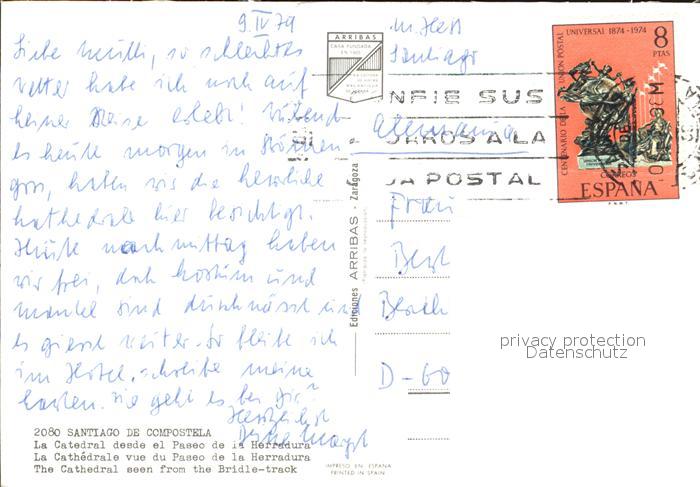 9. IV 79
Liebe Mutti, so schlechtes
Wetter habe ich noch auf
keiner Reise erlebt! Während
es heute morgen in Strömen
goss, haben wir die herrliche
Kathedrale hier besichtigt.
Heute nachmittag haben
wir frei, doch Kostüm und
Mantel sind durchnässt und
es giesst weiter. So bleibe ich
im Hotel, schreibe meine
Karten. Wie geht es bei Dir?
Herzlichst
Margit
2080 SANTIAGO DE COMPOSTELA
La Catedral desde el Paseo de la Herradura
La Cathédrale vue du Paseo de la Herradura
The Cathedral seen from the Bridle-track
ARRIBAS
CASA FUNDADA
Ediciones ARRIBAS - Zaragoza
IMPRESO EN ESPAÑA
PRINTED IN SPAIN
Santiago
Alemania
Frau
D-60
NFIE SUS
ORROS A LA
JA POSTAL
CENTENARIO DE LA UNION POSTAL UNIVERSAL 1874-1974
8
PTAS
CORREOS
ESPAÑA
F.N.M.T.
privacy protection
Datenschutz